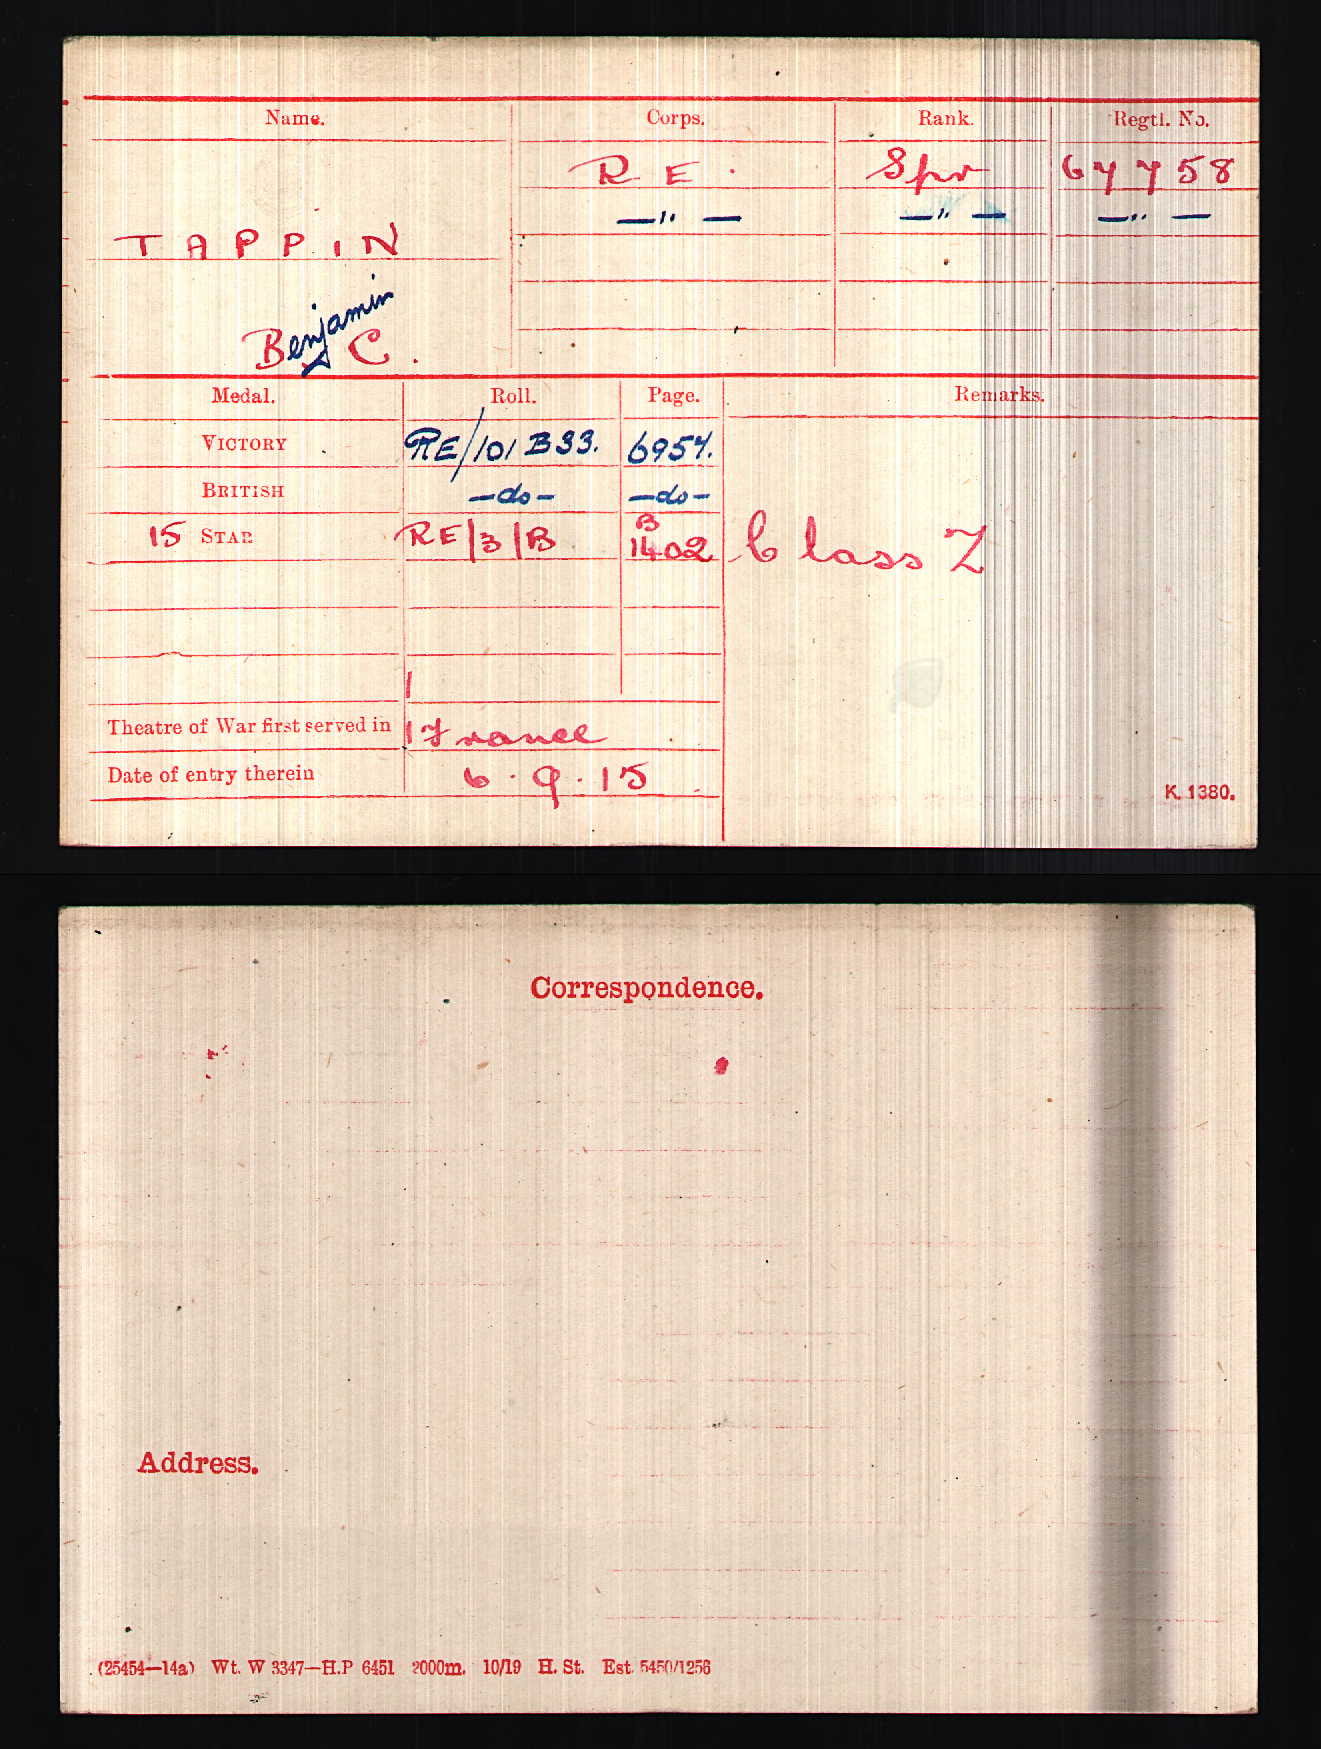 Name. Corps. Rank. Regtl. No.
R E. Spr 67758
—"— —"— —"—
TAPPIN
Benjamin C.
Medal. Roll. Page. Remarks.
VICTORY RE/101 B33. 6957.
BRITISH —do— —do—
B
15 STAR RE/3/B 1402 Class Z
Theatre of War first served in 1 France
Date of entry therein 6.9.15
K. 1380.
Correspondence.
Address.
(25454—14a) Wt. W 3347—H.P 6451 2000m. 10/19 H. St. Est. 5450/1256